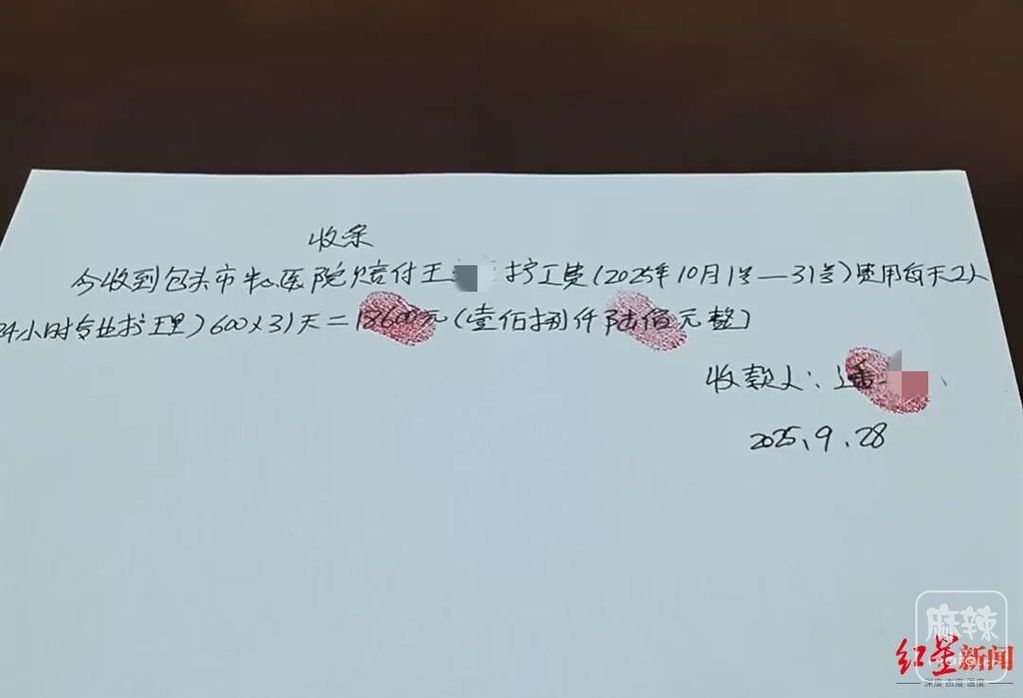 收条
今收到包头市中心医院赔付王 护工费(2025年10月1号—31号)费用每天2人
24小时专业护理)600×31天=18600元(壹佰捌仟陆佰元整)
收款人:潘
2025.9.28
麻辣
红星新闻
深度 态度 温度